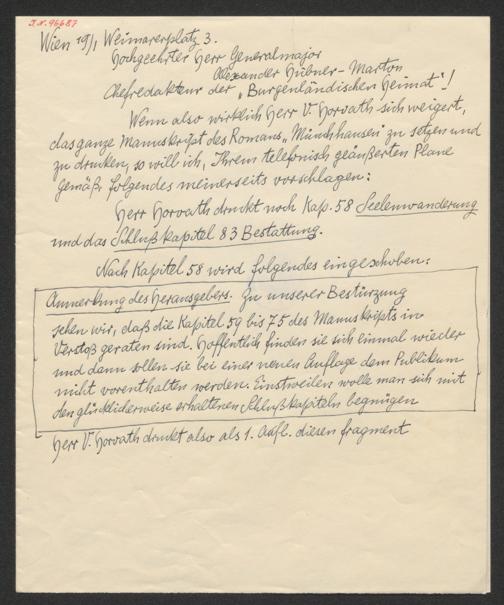 J.N. 96687
Wien 19/1 Weimarerplatz 3.
Hochgeehrter Herr Generalmajor
Alexander Hübner-Marton
Chefredakteur der „Burgenländischen Heimat"!
Wenn also wirklich Herr V. Horvath sich weigert,
das ganze Manuskript des Romans „Münchhausen" zu setzen und
zu drucken, so will ich, Ihrem telefonisch geäußerten Plane
gemäß folgendes meinerseits vorschlagen:
Herr Horvath druckt noch Kap. 58 Seelenwanderung
und das Schlußkapitel 83 Bestattung.
Nach Kapitel 58 wird folgendes eingeschoben:
Anmerkung des Herausgebers. Zu unserer Bestürzung
sehen wir, daß die Kapitel 59 bis 75 des Manuskripts in
Verstoß geraten sind. Hoffentlich finden sie sich einmal wieder
und dann sollen sie bei einer neuen Auflage dem Publikum
nicht vorenthalten werden. Einstweilen wolle man sich mit
den glücklicherweise erhaltenen Schlußkapiteln begnügen
Herr V. Horvath druckt also als 1. Aufl. diesen fragment